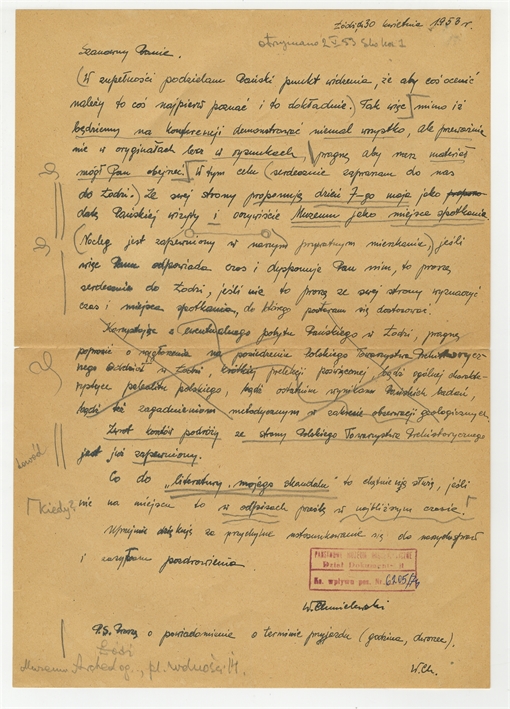 Łódź, 30 kwietnia 1953 r.
otrzymano 2 V 53
Szanowny Panie.
(W zupełności podzielam Pański punkt widzenia, że aby coś ocenić
należy to coś najpierw poznać i to dokładnie.) Tak więc mimo iż
będziemy na konferencji demonstrować niemal wszystko, ale przeważnie
nie w oryginałach lecz w rysunkach, pragnę, aby nasz materiał
mógł Pan obejrzeć. W tym celu (serdecznie zapraszam do nas
do Łodzi.) Ze swej strony proponuję dzień 7-go maja jako
datę Pańskiej wizyty i oczywiście Muzeum jako miejsce spotkania
(Nocleg jest zapewniony w naszym prywatnym mieszkaniu), jeśli
więc Panu odpowiada czas i dysponuje Pan nim, to proszę
serdecznie do Łodzi, jeśli nie to proszę ze swej strony wyznaczyć
czas i miejsce spotkania, do którego postaram się dostosować.
Korzystając z ewentualnego pobytu Pańskiego w Łodzi, pragnę
poprosić o wygłoszenie na posiedzeniu Polskiego Towarzystwa Prehistorycz-
nego Oddział w Łodzi, krótkiej prelekcji poświęconej bądź ogólnej charakte-
rystyce paleolitu polskiego, bądź ostatnim wynikom Pańskich badań,
bądź też zagadnieniom metodycznym w zakresie obserwacji geologicznych.
Zwrot kosztów podróży ze strony Polskiego Towarzystwa Prehistorycznego
jest już zapewniony.
dowód
Co do „literatury mojego skandalu" to chętnie nią służę, jeśli
Kiedy?
nie na miejscu to w odpisach prześlę w najbliższym czasie.
Uprzejmie dziękuję za przychylne ustosunkowanie się do
i zasyłam pozdrowienia
PAŃSTWOWE MUZEUM ARCHEOLOGICZNE
Dział Dokumentacji
Ks. wpływu poz. Nr.
W. Chmielewski
P.S. Proszę o powiadomienie o terminie przyjazdu (godzina, dworzec).
Łódź
Muzeum Archeolog., pl. Wolności 14.
W. Ch.